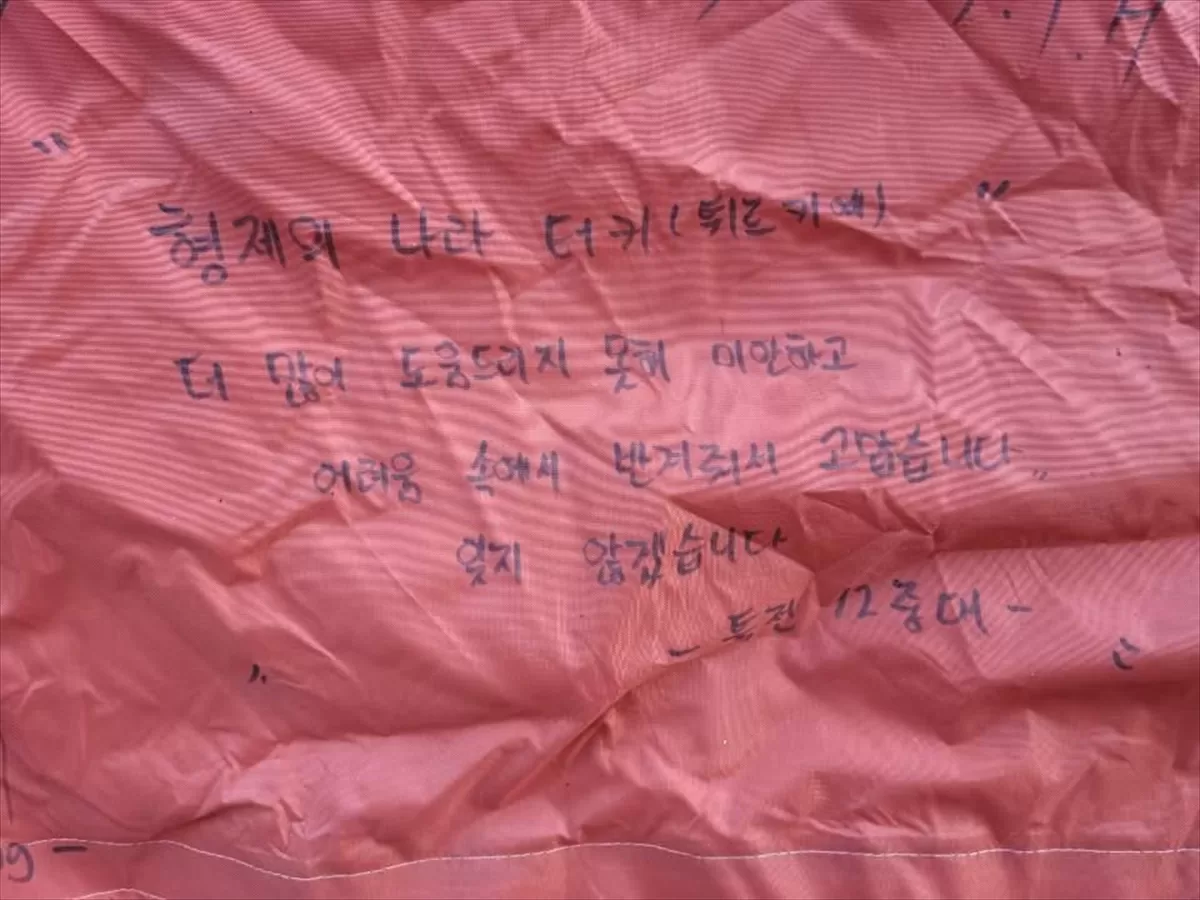 "형제의 나라 터키(튀르키예)"
더 많이 도움드리지 못해 미안하고
어려움 속에서 반겨줘서 고맙습니다
잊지 않겠습니다
- 특전 12중대 -